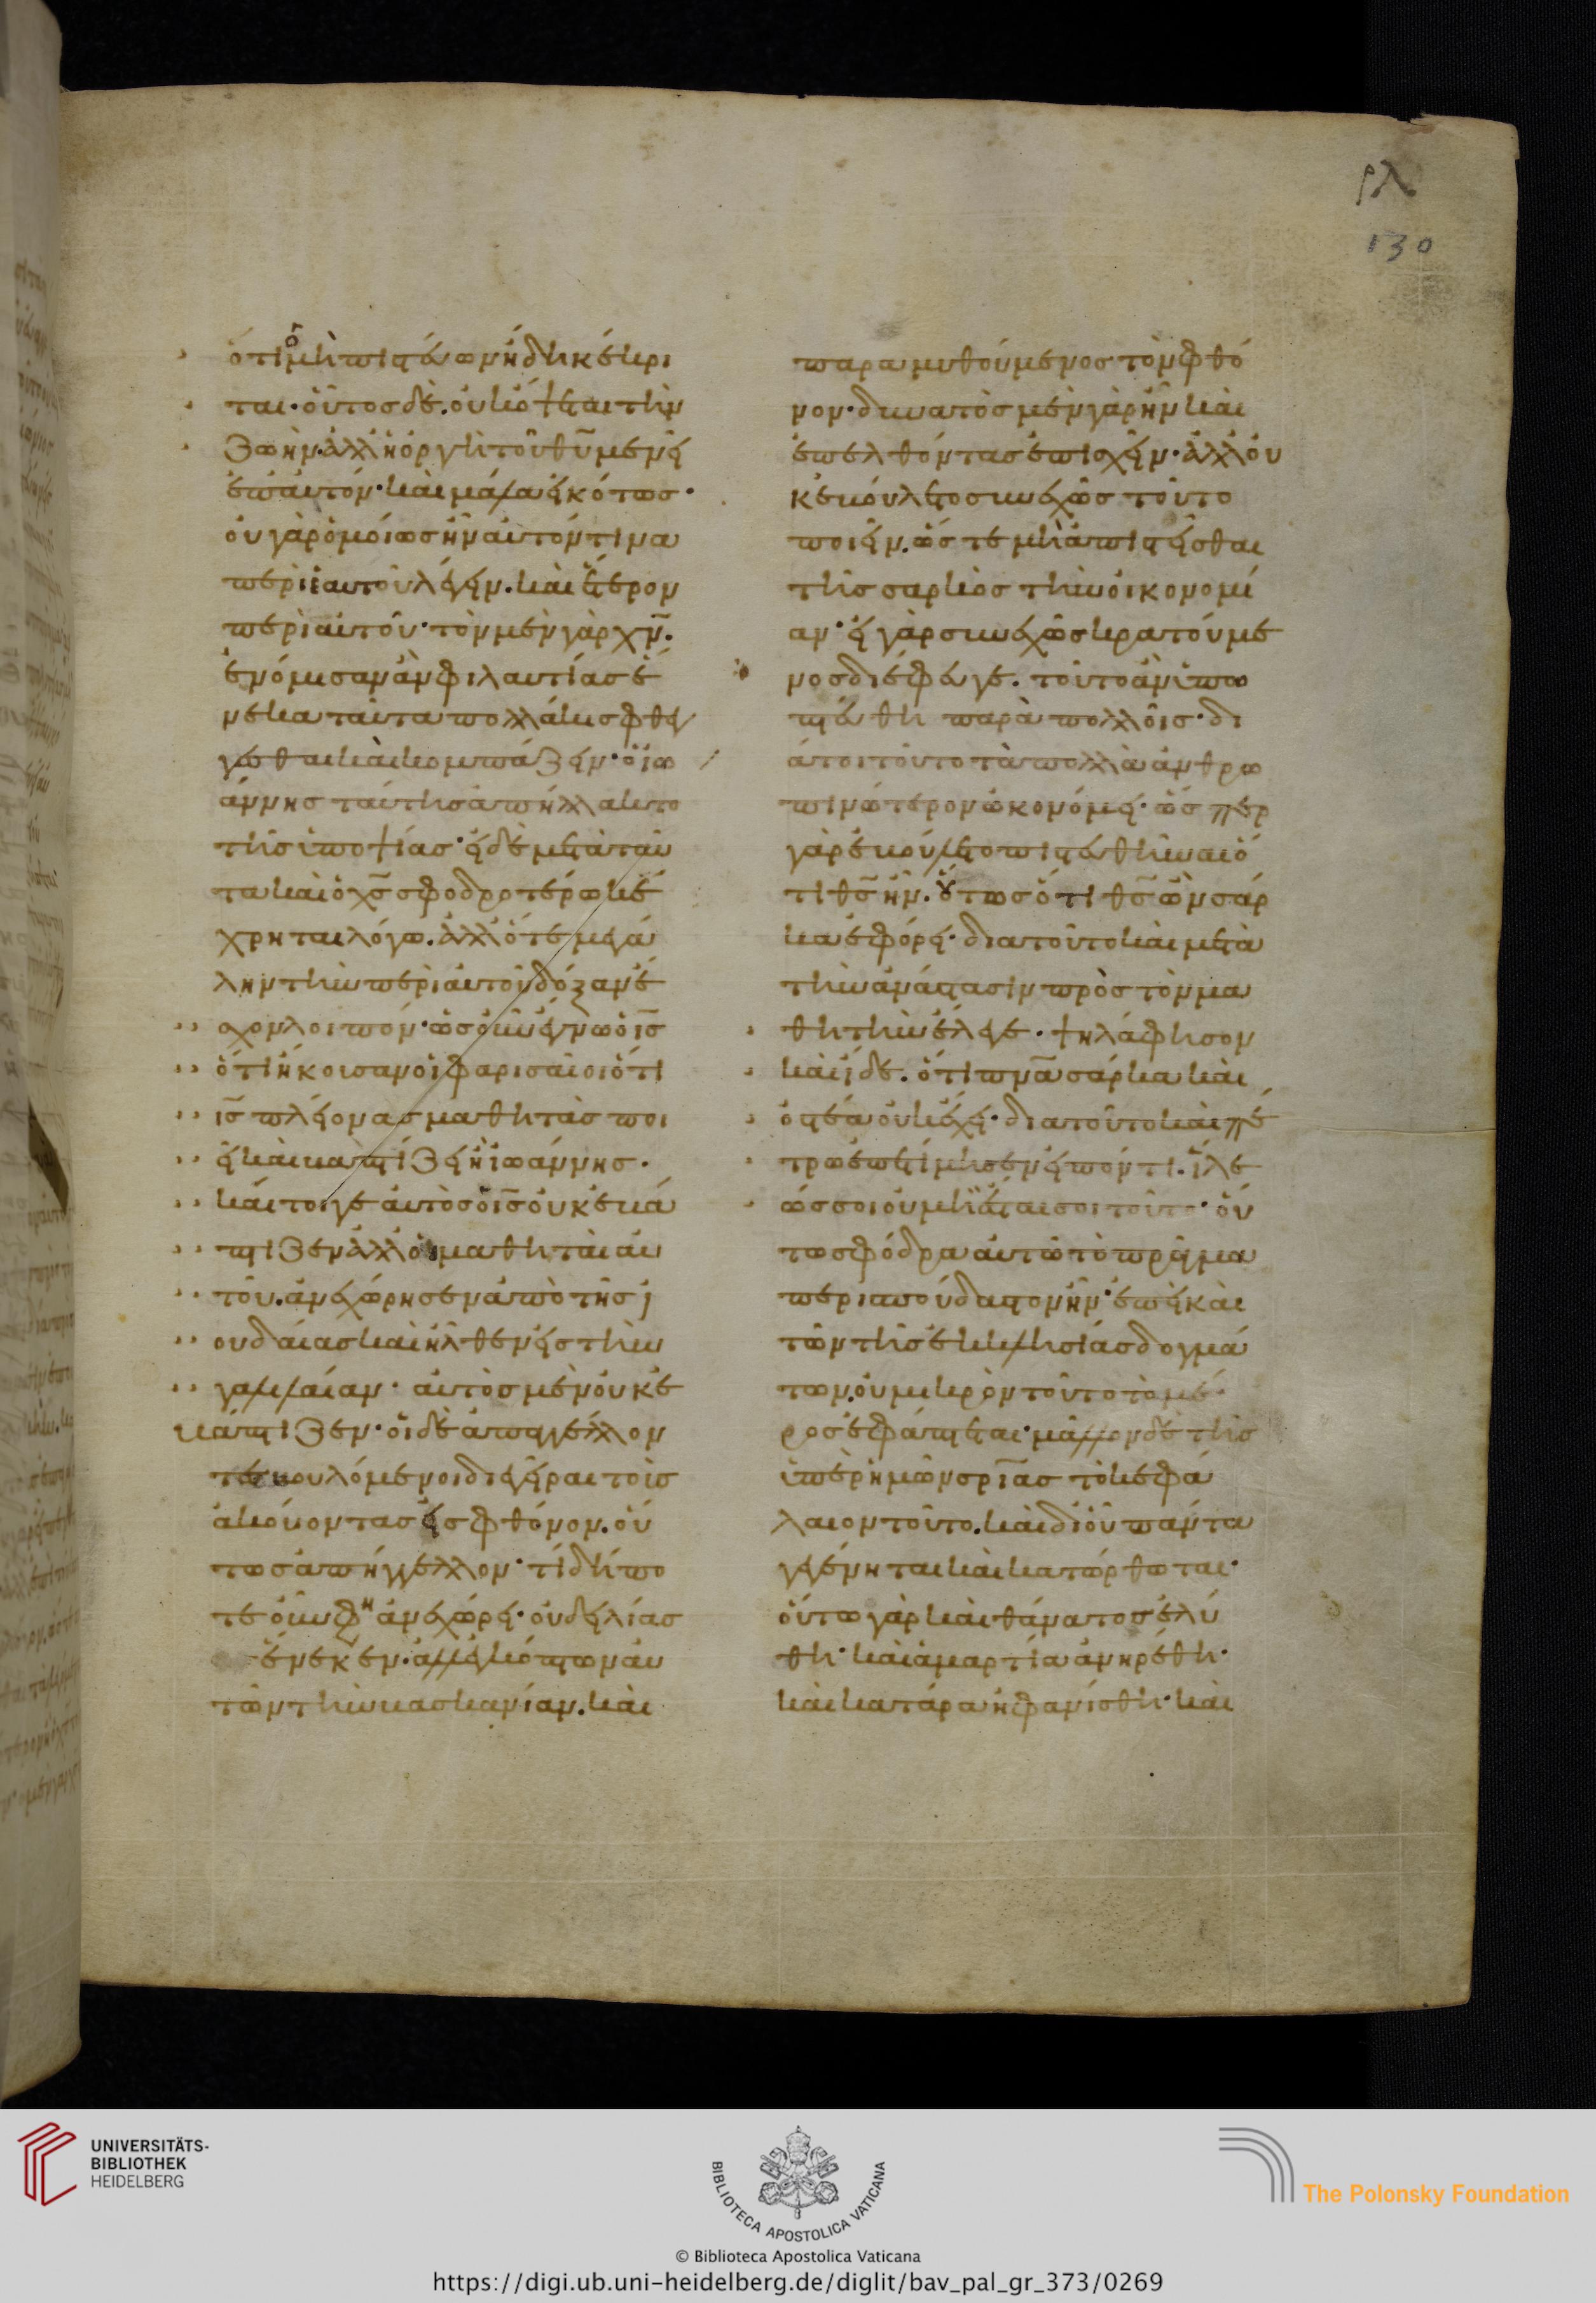 ρλ
130
ὅτι ὁ μὴ πιστεύων ἤδη κέκρι
ται· οὗτος δὲ. οὐκ ὄψεται τὴν
ζωήν. ἀλλ' ἡ ὀργὴ τοῦ θυ̅ μένει
ἐπ' αὐτόν· καὶ μάλα εἰκότως·
οὐ γὰρ ὁμοίως ἦν αὐτόν τινα
περὶ ἑαυτοῦ λέγειν. καὶ ἕτερον
περὶ αὐτοῦ· τὸν μὲν γὰρ χν̅.
ἐνόμισαν ἂν φιλαυτίας ἕ
νεκα ταῦτα πολλάκις φθέγ
γεσθαι καὶ κομπάζειν· ὁ ἰω
άννης ταύτης ἀπήλλακτο
τῆς ὑποψίας· εἰ δὲ μετὰ ταῦ
τα καὶ ὁ χς̅ σφοδροτέρω κέ
χρηται λόγω. ἀλλ' ὅτε μεγά
λην τὴν περὶ αὐτοῦ δόξαν εἶ
χον λοιπόν· ὡς οὖν ἔγνω ὁ ις̅
ὅτι ἤκουσαν οἱ φαρισαῖοι ὅτι
ις̅ πλείονας μαθητὰς ποι
εῖ καὶ βαπτίζει ἢ ἰωάννης·
καίτοιγε αὐτὸς ὁ ις̅ οὐκ ἐβά
πτιζεν ἀλλ' οἱ μαθηταὶ αὐ
τοῦ. ἀνεχώρησεν ἀπὸ τῆς ἰ
ουδαίας καὶ ἦλθεν εἰς τὴν
γαλιλαίαν· αὐτὸς μὲν οὐκ ἐ
βάπτιζεν· οἱ δὲ ἀπαγγέλλον
τες βουλόμενοι διεγεῖραι τοὺς
ἀκούοντας εἰς φθόνον. οὕ
τως ἀπήγγελλον· τί δήπο
τε οὖν φη ἀνεχώρει· οὐ δειλίας
ἕνεκεν. ἀλλ' ἐκκόπτων αὐ
τῶν τὴν βασκανίαν. καὶ
παραμυθούμενος τὸν φθό
νον· δυνατὸς μὲν γὰρ ἦν καὶ
ἐπελθόντας ἐπισχεῖν· ἀλλ' οὐ
κ ἐβούλετο συνεχῶς τοῦτο
ποιεῖν. ὥστε μὴ ἀπιστεῖσθαι
τῆς σαρκὸς τὴν οἰκονομί
αν· εἰ γὰρ συνεχῶς κρατούμε
νος διέφευγε. τοῦτο ἂν ὑπω
πτεύθη παρὰ πολλοῖς· δι
άτοι τοῦτο τὰ πολλὰ ἀνθρω
πινώτερον ὠκονόμει· ὥσπερ
γὰρ ἐβούλετο πιστευθῆναι ὅ
τι θς̅ ἦν. οὕτως ὅτι θς̅ ὢν σάρ
κα ἐφόρει· διὰ τοῦτο καὶ μετὰ
τὴν ἀνάστασιν πρὸς τὸν μα
θητὴν ἔλεγε· ψηλάφησον
καὶ ἴδε. ὅτι πνα̅ σάρκα καὶ
ὀστέα οὐκ ἔχει· διὰ τοῦτο καὶ πέ
τρω ἐπετίμησεν εἰπόντι. ἵλε
ώς σοι οὐ μὴ ἔσται σοι τοῦτο· οὕ
τω σφόδρα αὐτῶ τὸ πρᾶγμα
περισπούδαστον ἦν· ἐπεὶ καὶ
τῶν τῆς ἐκκλησίας δογμά
των. οὐ μικρὸν τοῦτο τὸ μέ
ρος ἐφάπτεται· μᾶλλον δὲ τῆς
ὑπὲρ ἡμῶν σρι̅ας τὸ κεφά
λαιον τοῦτο. καὶ δι' οὗ πάντα
γεγένηται καὶ κατώρθωται·
οὕτω γὰρ καὶ θάνατος ἐλύ
θη· καὶ ἁμαρτία ἀνηρέθη·
καὶ κατάρα ἠφανίσθη· καὶ
UNIVERSITÄTS-
BIBLIOTHEK
HEIDELBERG
BIBLIOTECA APOSTOLICA VATICANA
The Polonsky Foundation
© Biblioteca Apostolica Vaticana
https://digi.ub.uni-heidelberg.de/diglit/bav_pal_gr_373/0269